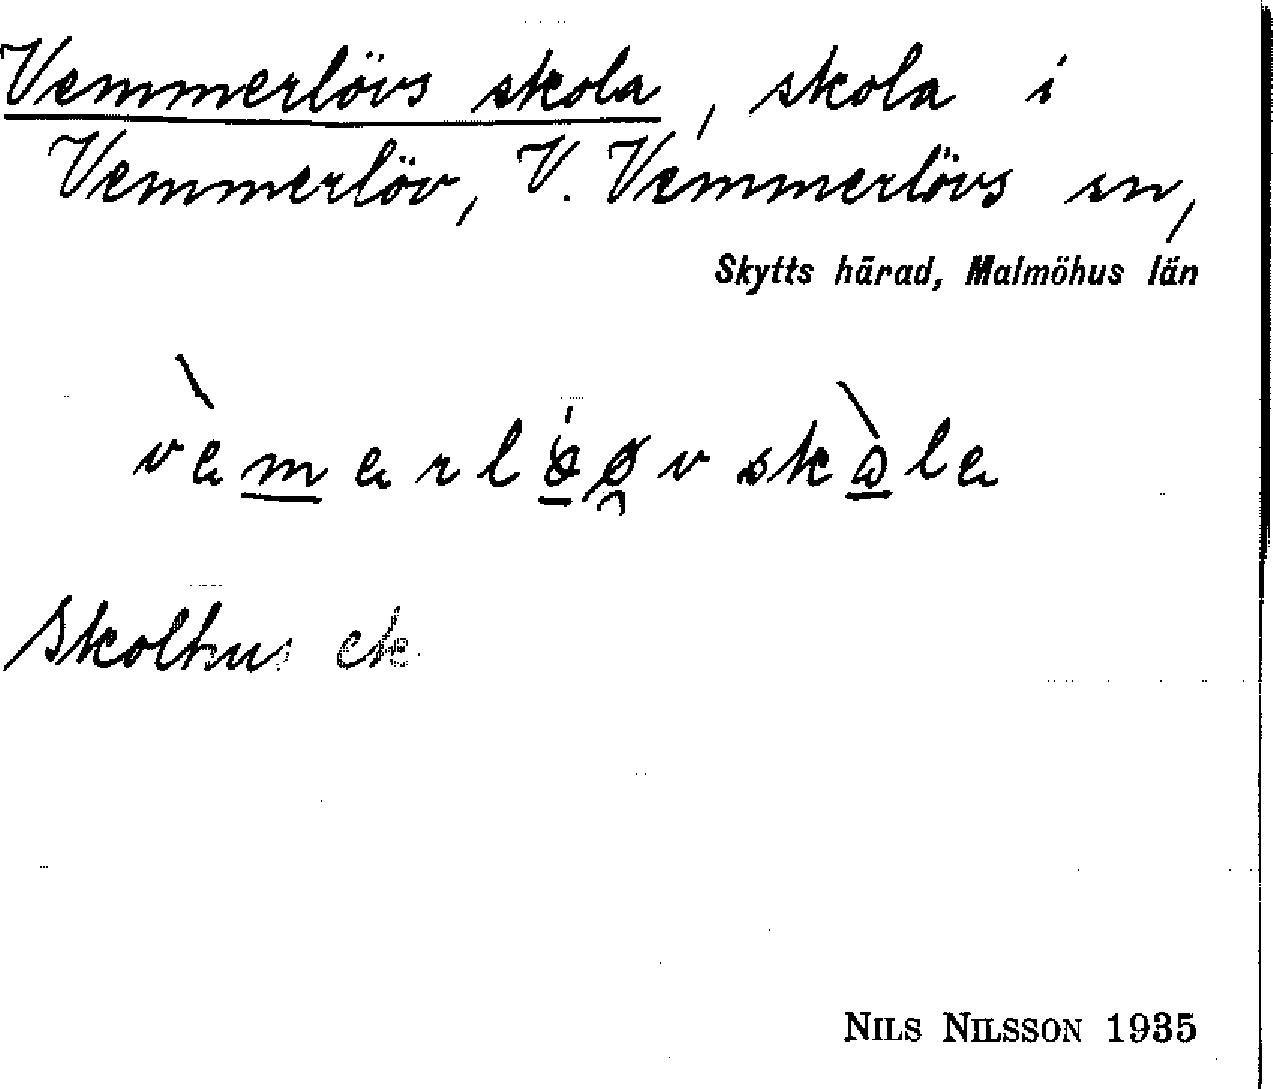 Vemmerlövs skola, skola i
Vemmerlöv, V. Vemmerlövs sn,
Skytts härad, Malmöhus län
Skolhus ek
NILS NILSSON 1935